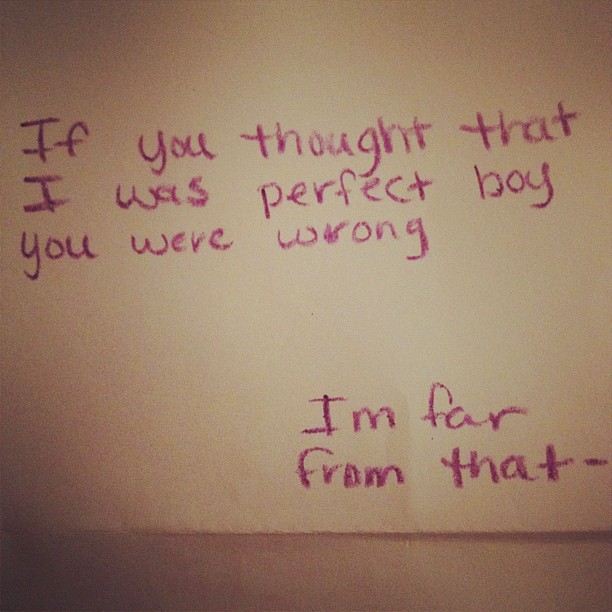 If you thought that
I was perfect boy
you were wrong
Im far
from that-